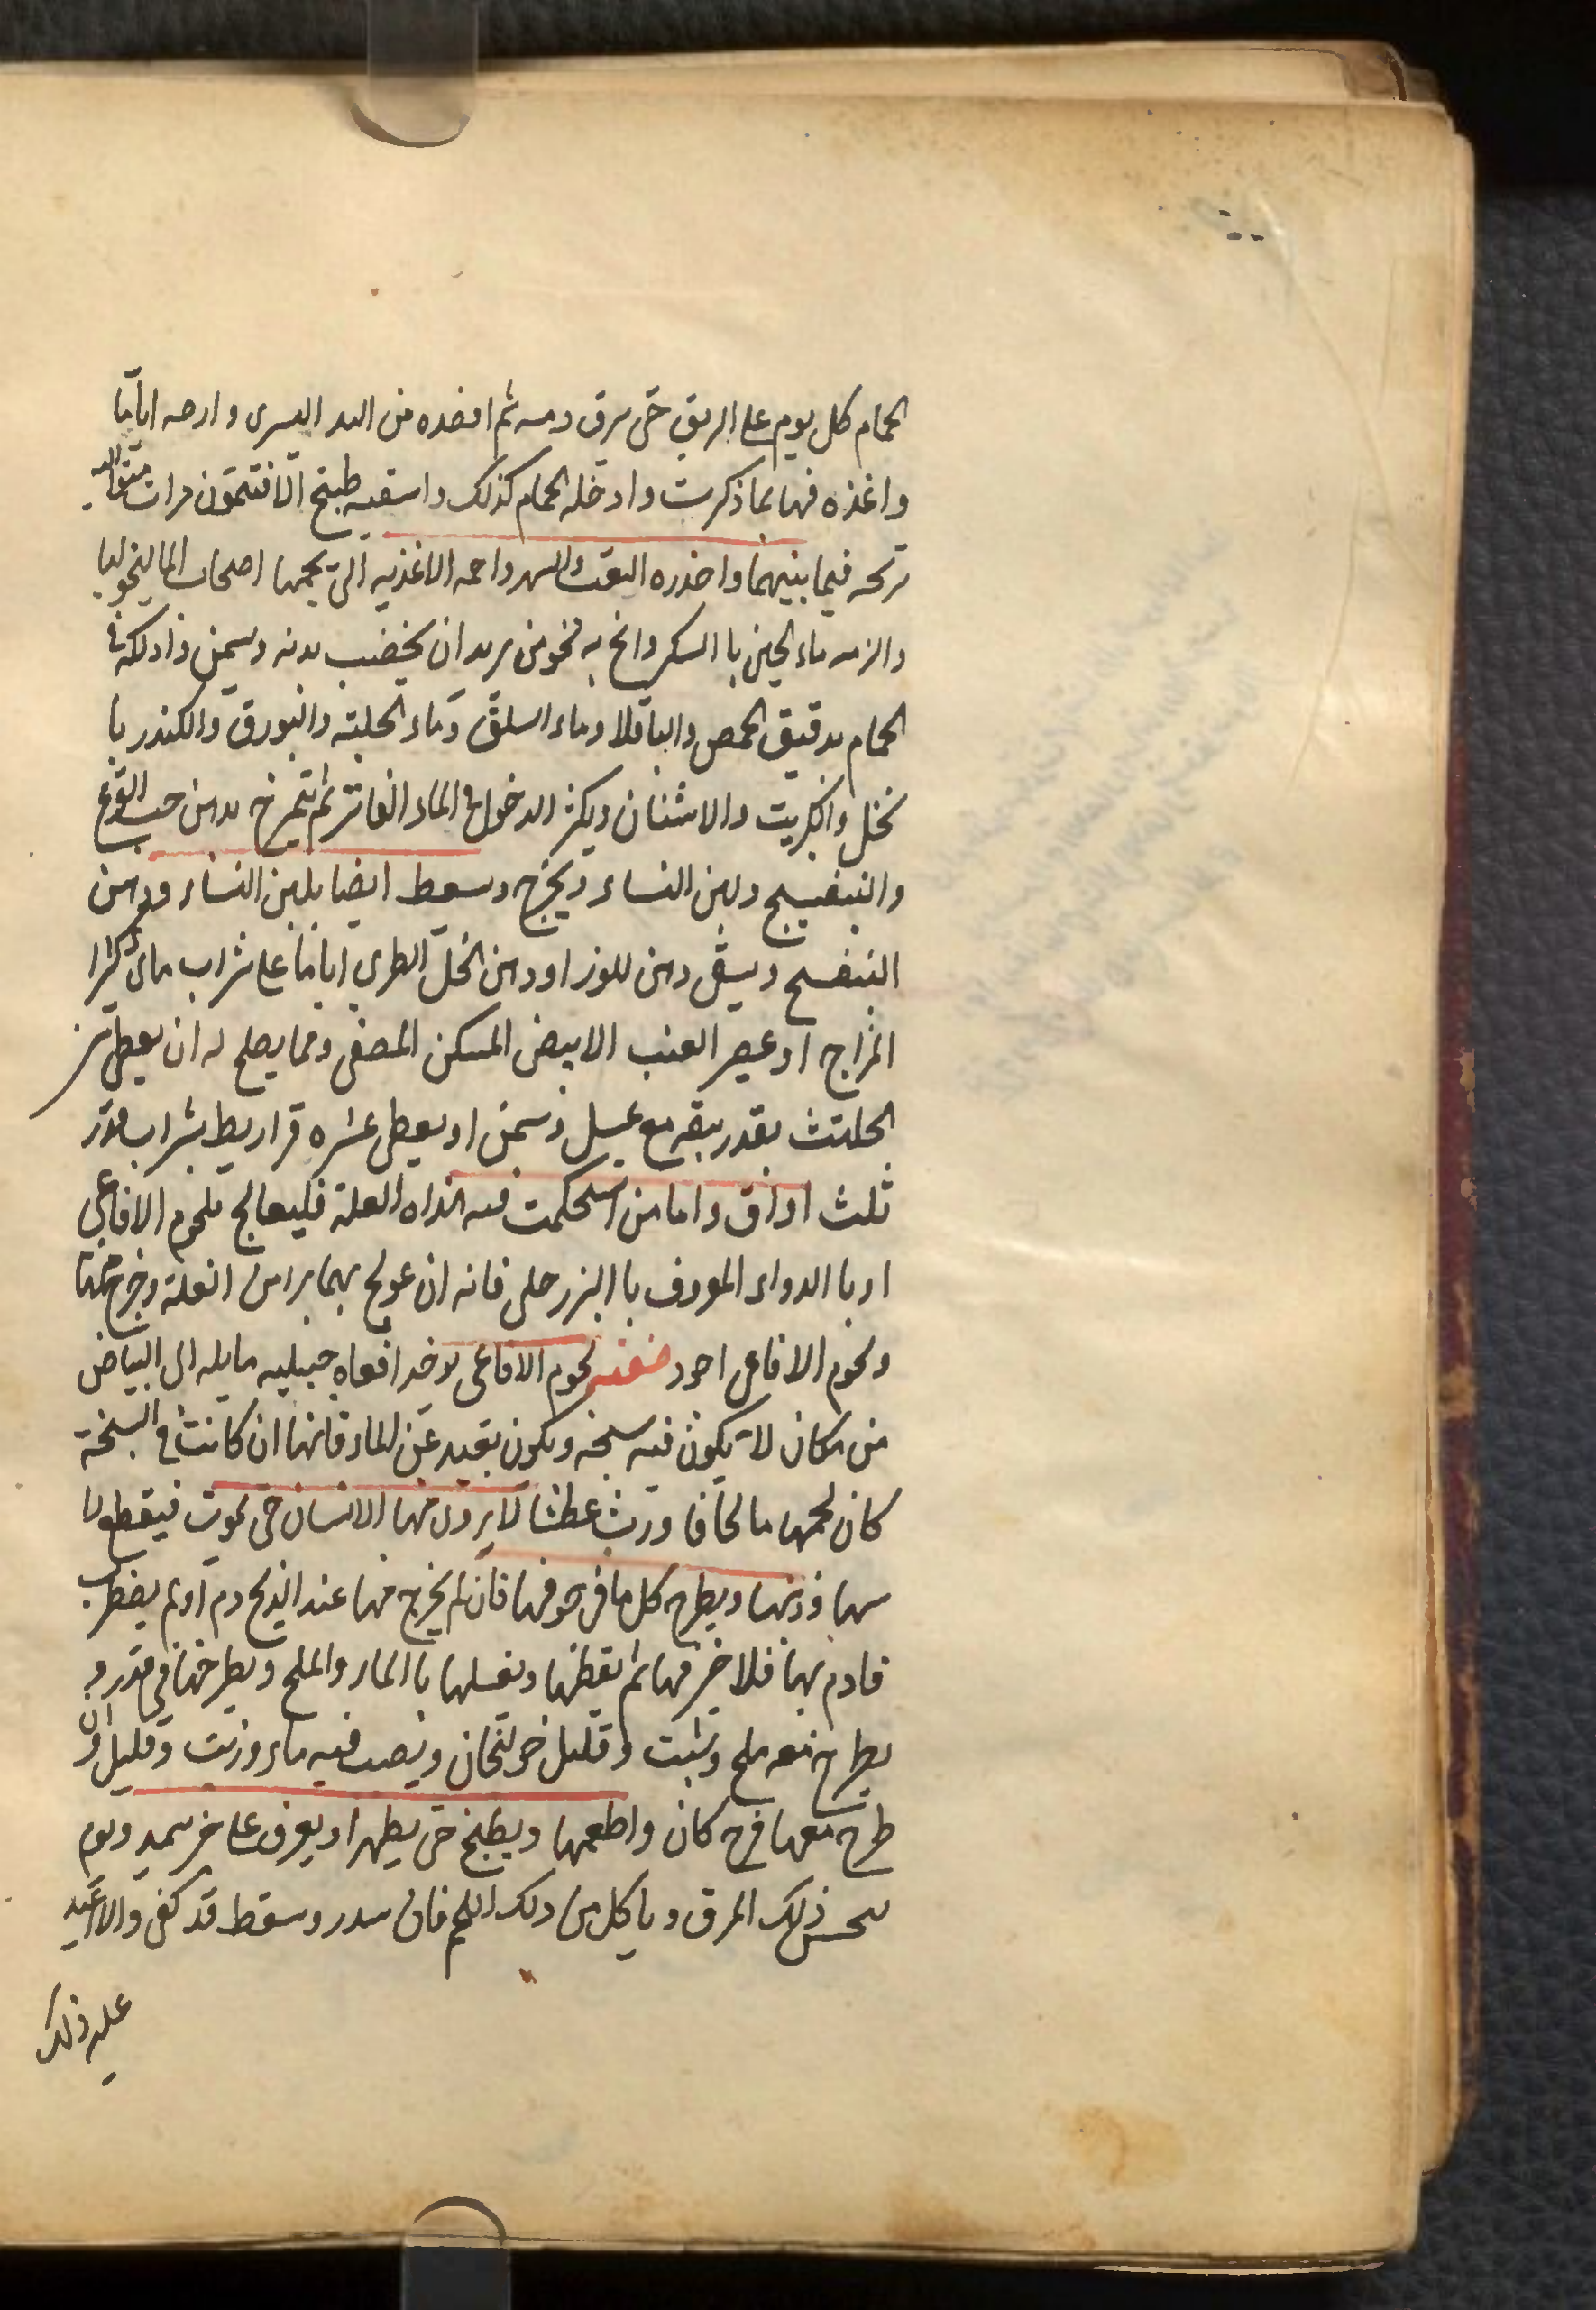 الحمام كل يوم على الريق حتى يرق دمه ثم افصده من اليد اليسرى وارحه اياما
واغذه فيها بما ذكرت وادخله الحمام كذلك واسقيه طبيخ الافتيمون مرات متواليه
ترىحه فيما بينهما واحذره التعب والسهر واحمه الاغذيه التي يحمها اصحاب الماليخوليا
والزمه ماء الجبن با السكر وانح به نحو من يريد ان يخضب بدنه ويسمن وادلكه في
الحمام بدقيق الحمص والباقلا وماء السلق وماء الحلبته والبورق والكندر با
لخل والكبريت والاشنان ويكثر الدخول في الماء الفاتر ثم يتمرخ بدهن حب القرع
والبنفسج ولبن النساء ويخرج وسعط ايضا بلبن النساء ودهن
البنفسج ويسقى دهن للوز او دهن الخل الطرى اياما على شراب مائى كثرا
المزاج او عصير العنب الابيض المسكن المصفى ومما يصلح له ان يعطى من
الحلتث بقدر بيقه مع عسل وسمن او يعطى عشره قراريط بشراب قدر
ثلث اواق واما من استحكمت فيه هذاه العلة فليعالج بلحوم الافاعى
او با الدواء المعروف با البزرحلى فانه ان عولج بهما برا من العلة وخرج منها
ولحوم الافاعى اجود صفته لحوم الافاعى يوخد افعاه جبليه مايله الى البياض
من مكان لا يكون فيه سبخه ويكون بعيد عن الماء فانها ان كانت في السبخة
كان لحمها مالحا فا ورث عطشا لا يروى منها الانسان حتى يموت فيقطع را
سها وذنبها ويطرح كل ما في جوفها فان لم يخرج منها عند الذبح دم او لم يضطرب
فادم بها فلا خير فيها ثم يقطعها ويغسلها با الماء والملح ويطرحها في قدر و
يطرح معه ملح وشبت وقليل خولنجان ويصب فيه ماء وزيت وقليل وان
طرح معها فرخ كان واطعمها ويطبخ حتى يطهرا ويغرف على خبز سميد ويوم
يحسن ذلك المرق وياكل من ذلك اللحم فان سدر وسقط قد كفى والا اعيد
عليه ذلك